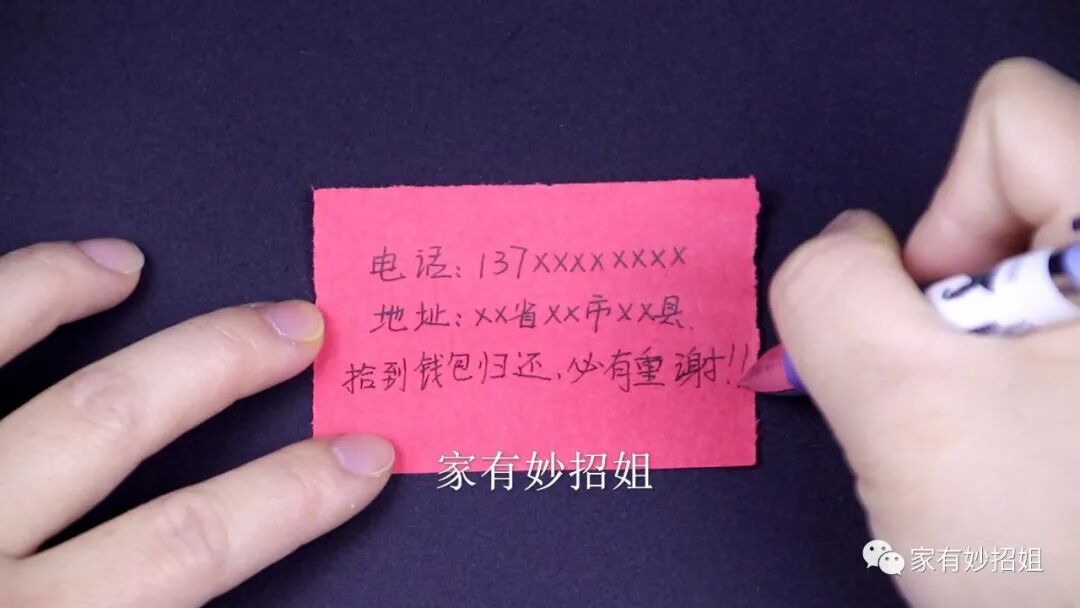 电话:137xxxxxxxx
地址:xx省xx市xx县
拾到钱包归还,必有重谢!!
家有妙招姐
家有妙招姐